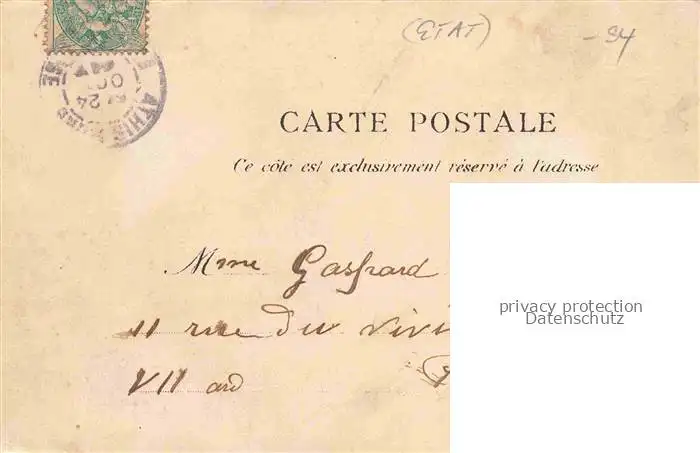 (ETAT)
-94
ATHIS
24
OCT
CARTE POSTALE
Ce côte est exclusivement réservé à l'adresse
Mme Gaspard
11 rue du
VII ard
privacy protection
Datenschutz